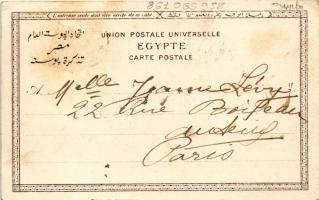 861 065958
L'adresse seule doit être écrite de ce côté
UNION POSTALE UNIVERSELLE
اتحاد البوستة العام
EGYPTE
مصر
CARTE POSTALE
تذكرة بوستة
A Melle Jeanne Lévy
22 Rue Boileau
Paris